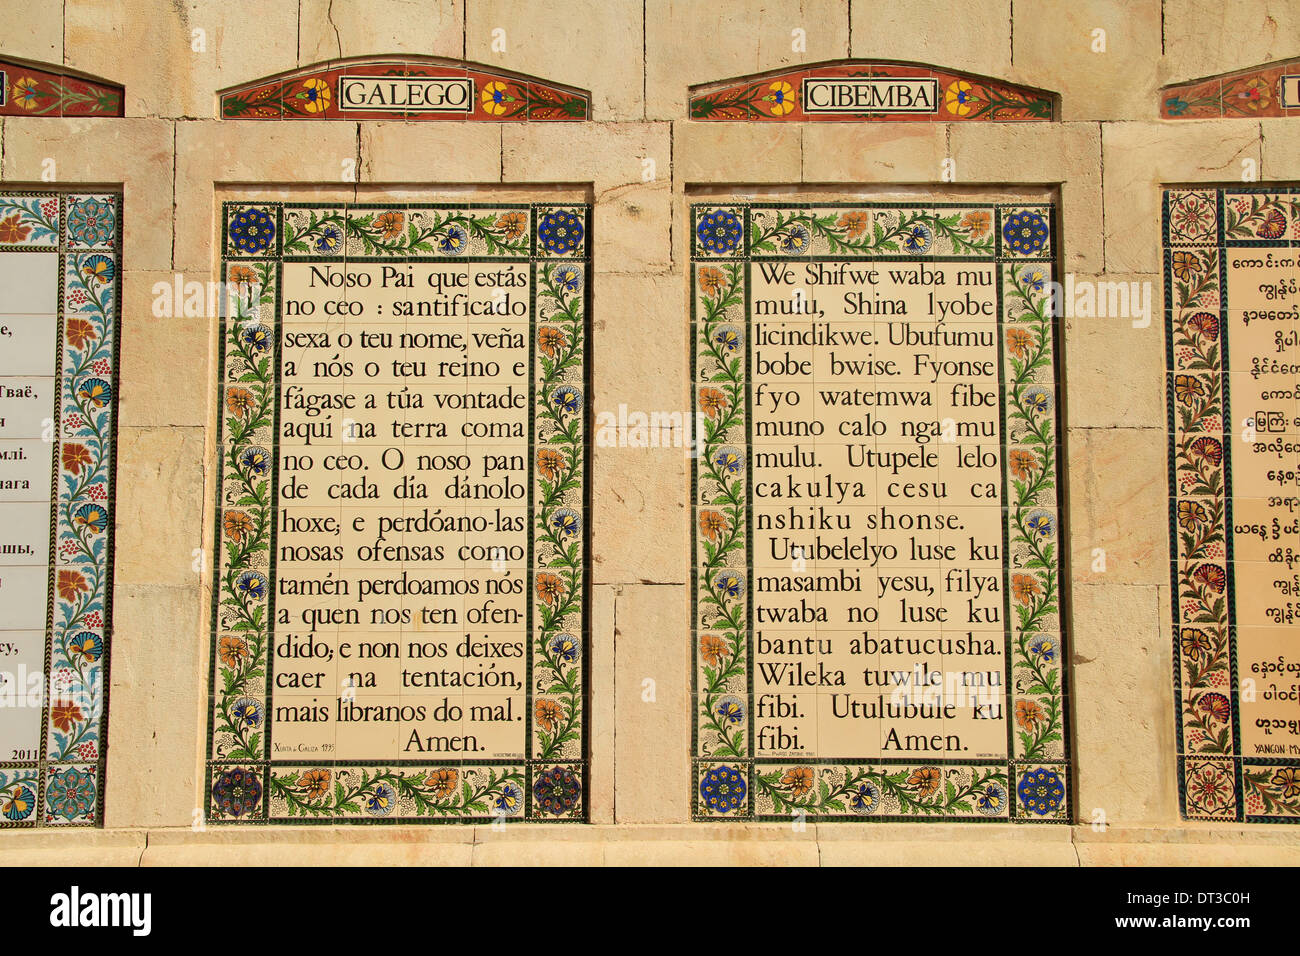 GALEGO
Noso Pai que estás
no ceo : santificado
sexa o teu nome, veña
a nós o teu reino e
fágase a túa vontade
aquí na terra coma
no ceo. O noso pan
de cada día dánolo
hoxe; e perdóano-las
nosas ofensas como
tamén perdoamos nós
a quen nos ten ofen-
dido; e non nos deixes
caer na tentación,
mais líbranos do mal.
Amen.
XUNTA de GALIZA 1995
CIBEMBA
We Shifwe waba mu
mulu, Shina lyobe
licindikwe. Ubufumu
bobe bwise. Fyonse
fyo watemwa fibe
muno calo nga mu
mulu. Utupele lelo
cakulya cesu ca
nshiku shonse.
Utubelelyo luse ku
masambi yesu, filya
twaba no luse ku
bantu abatucusha.
Wileka tuwile mu
fibi. Utulubule ku
fibi. Amen.
2011
YANGON-MY
alamy
Image ID: DT3C0H
www.alamy.com